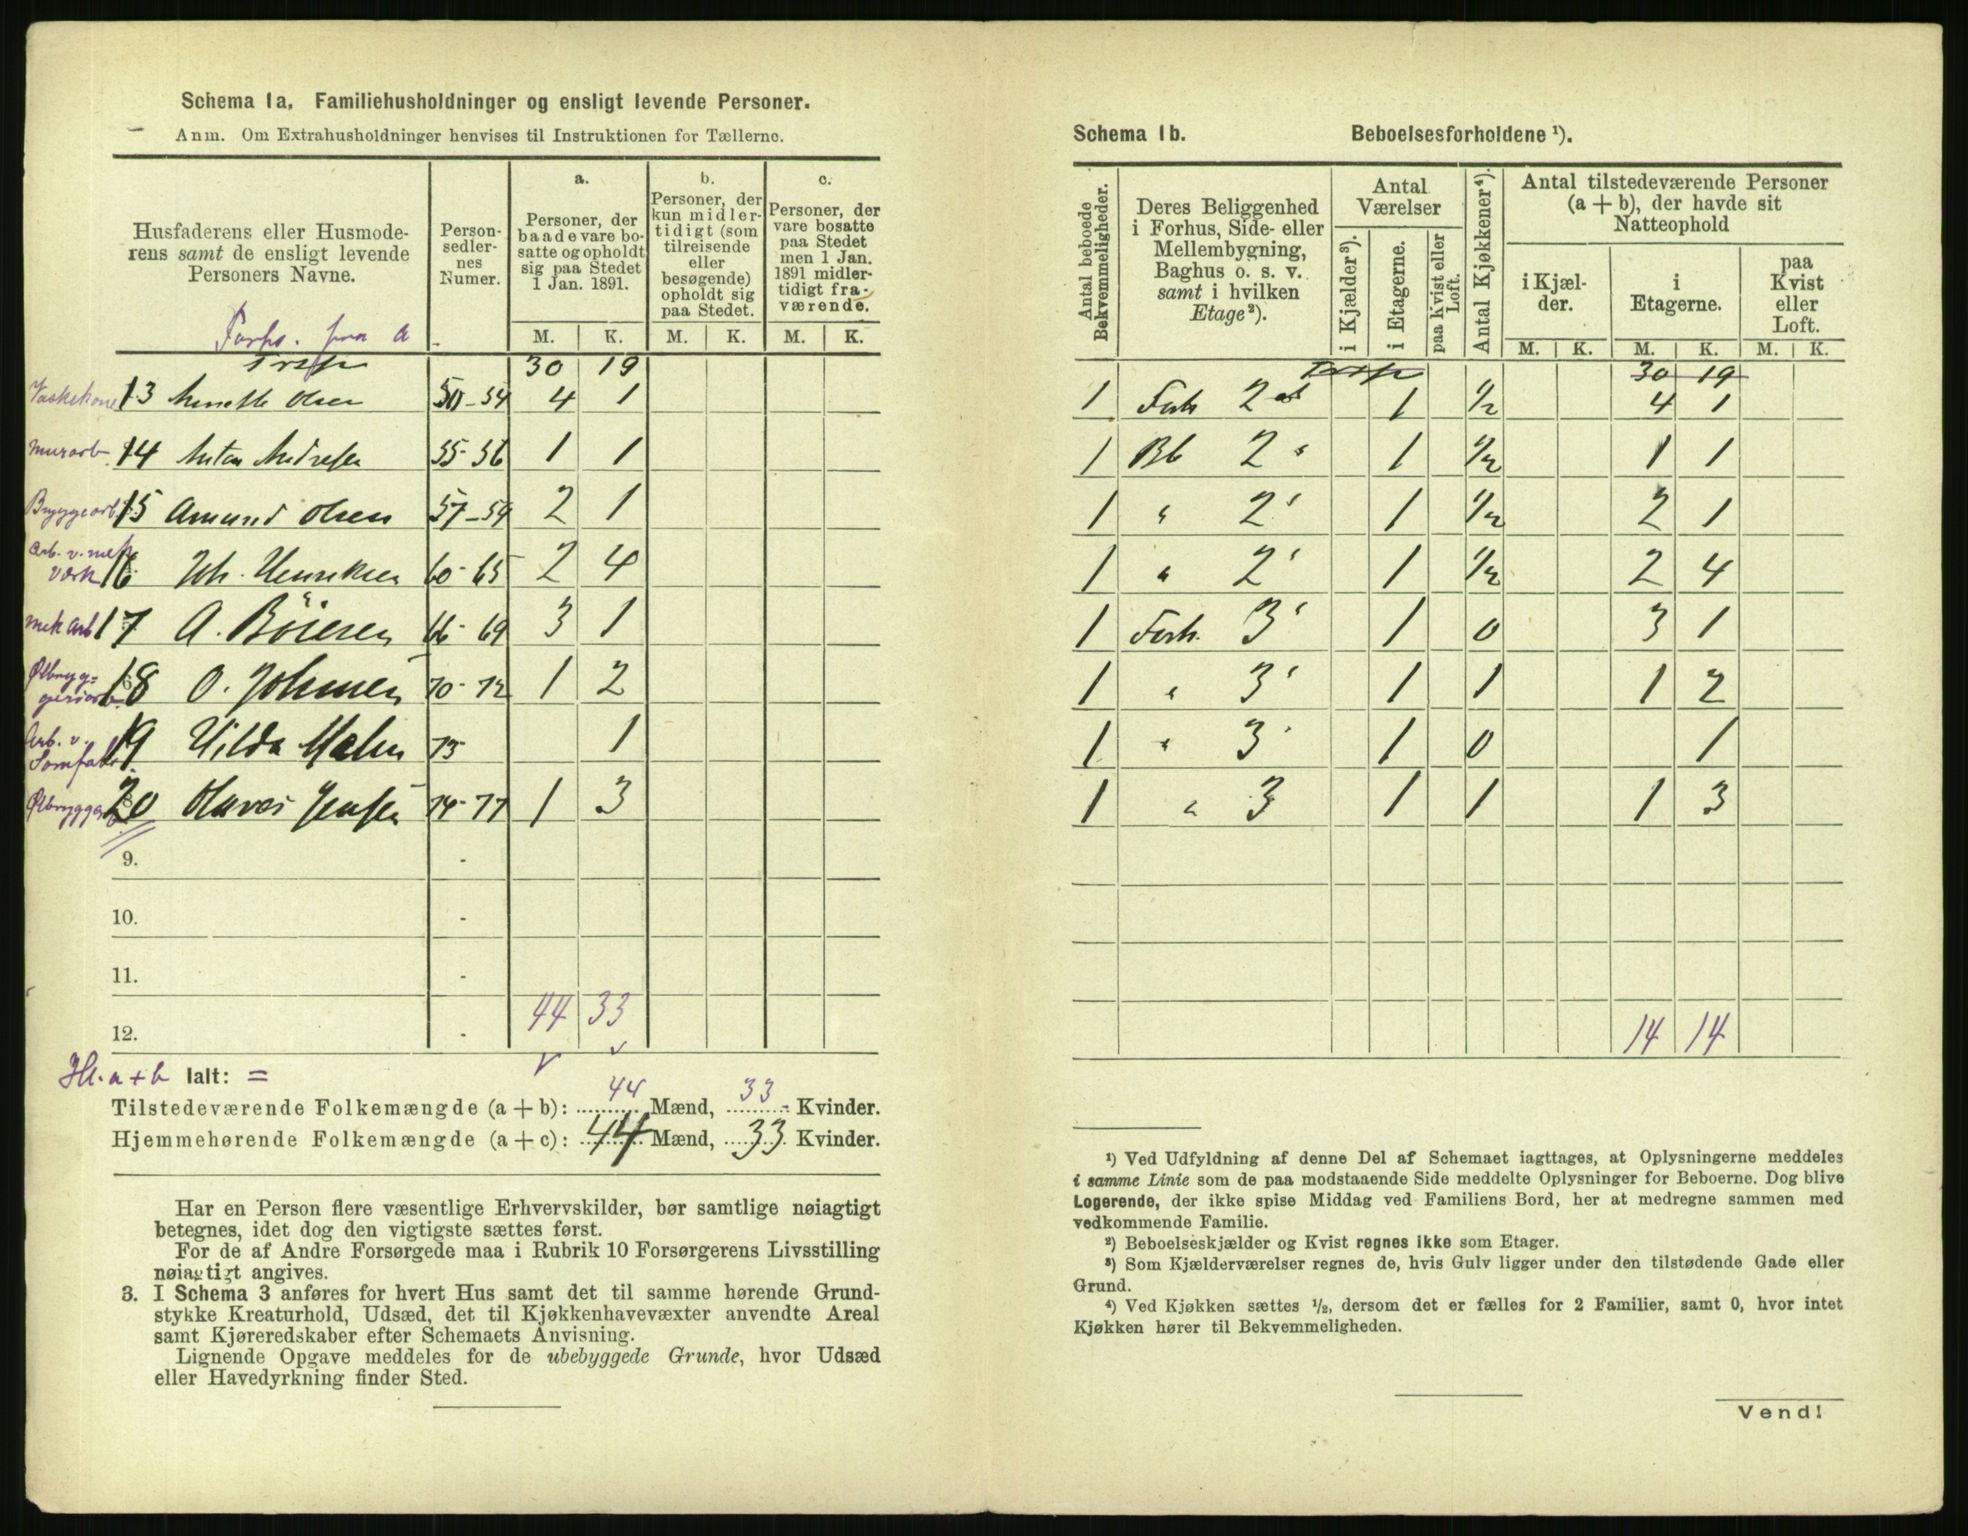 Schema 1a. Familiehusholdninger og ensligt levende Personer.
Anm. Om Extrahusholdninger henvises til Instruktionen for Tællerne.
Husfaderens eller Husmoderens samt de ensligt levende Personers Navne.
Person-sedler-nes Numer.
a. Personer, der baade vare bosatte og opholdt sig paa Stedet 1 Jan. 1891.
b. Personer, der kun midlertidigt (som tilreisende eller besøgende) opholdt sig paa Stedet.
c. Personer, der vare bosatte paa Stedet men 1 Jan. 1891 midlertidigt fraværende.
M. K. M. K. M. K.
fra A
30 19
Vaskekone 13 Olsen 50-54 4 1
Murarb. 14 Anton Andresen 55-56 1 1
Bryggearb. 15 Amund Olsen 57-59 2 1
Arb. v. mek Værk 16 Joh. Henriksen 60-65 2 4
Mek Arb 17 A. Böiesen 66-69 3 1
Ølbryggeriarb. 18 O. Johnsen 70-72 1 2
Arb. v. Sømfabr. 19 Hilda Malm 73 1
Ølbrygger 20 Jensen 74-77 1 3
9. -
10. -
11. -
12. - 44 33
Hl. a+b Ialt: =
Tilstedeværende Folkemængde (a + b): 44 Mænd, 33 Kvinder.
Hjemmehørende Folkemængde (a + c): 44 Mænd, 33 Kvinder.
Har en Person flere væsentlige Erhvervskilder, bør samtlige nøiagtigt
betegnes, idet dog den vigtigste sættes først.
For de af Andre Forsørgede maa i Rubrik 10 Forsørgerens Livsstilling
nøiagtigt angives.
3. I Schema 3 anføres for hvert Hus samt det til samme hørende Grund-
stykke Kreaturhold, Udsæd, det til Kjøkkenhavevæxter anvendte Areal
samt Kjøreredskaber efter Schemaets Anvisning.
Lignende Opgave meddeles for de ubebyggede Grunde, hvor Udsæd
eller Havedyrkning finder Sted.
Schema 1b. Beboelsesforholdene ¹).
Antal beboede Bekvemmeligheder.
Deres Beliggenhed i Forhus, Side- eller Mellembygning, Baghus o. s. v. samt i hvilken Etage²).
Antal Værelser
i Kjælder³). i Etagerne. paa Kvist eller Loft.
Antal Kjøkkener⁴).
Antal tilstedeværende Personer (a + b), der havde sit Natteophold
i Kjælder. i Etagerne. paa Kvist eller Loft.
M. K. M. K. M. K.
30 19
1 Forh 2 1 ½ 4 1
1 Bb 2 1 ½ 1 1
1 " 2 1 ½ 2 1
1 " 2 1 ½ 2 4
1 Forh. 3 1 0 3 1
1 " 3 1 1 1 2
1 " 3 1 0 1
1 " 3 1 1 1 3
14 14
¹) Ved Udfyldning af denne Del af Schemaet iagttages, at Oplysningerne meddeles
i samme Linie som de paa modstaaende Side meddelte Oplysninger for Beboerne. Dog blive
Logerende, der ikke spise Middag ved Familiens Bord, her at medregne sammen med
vedkommende Familie.
²) Beboelseskjælder og Kvist regnes ikke som Etager.
³) Som Kjælderværelser regnes de, hvis Gulv ligger under den tilstødende Gade eller
Grund.
⁴) Ved Kjøkken sættes ½, dersom det er fælles for 2 Familier, samt 0, hvor intet
Kjøkken hører til Bekvemmeligheden.
Vend!